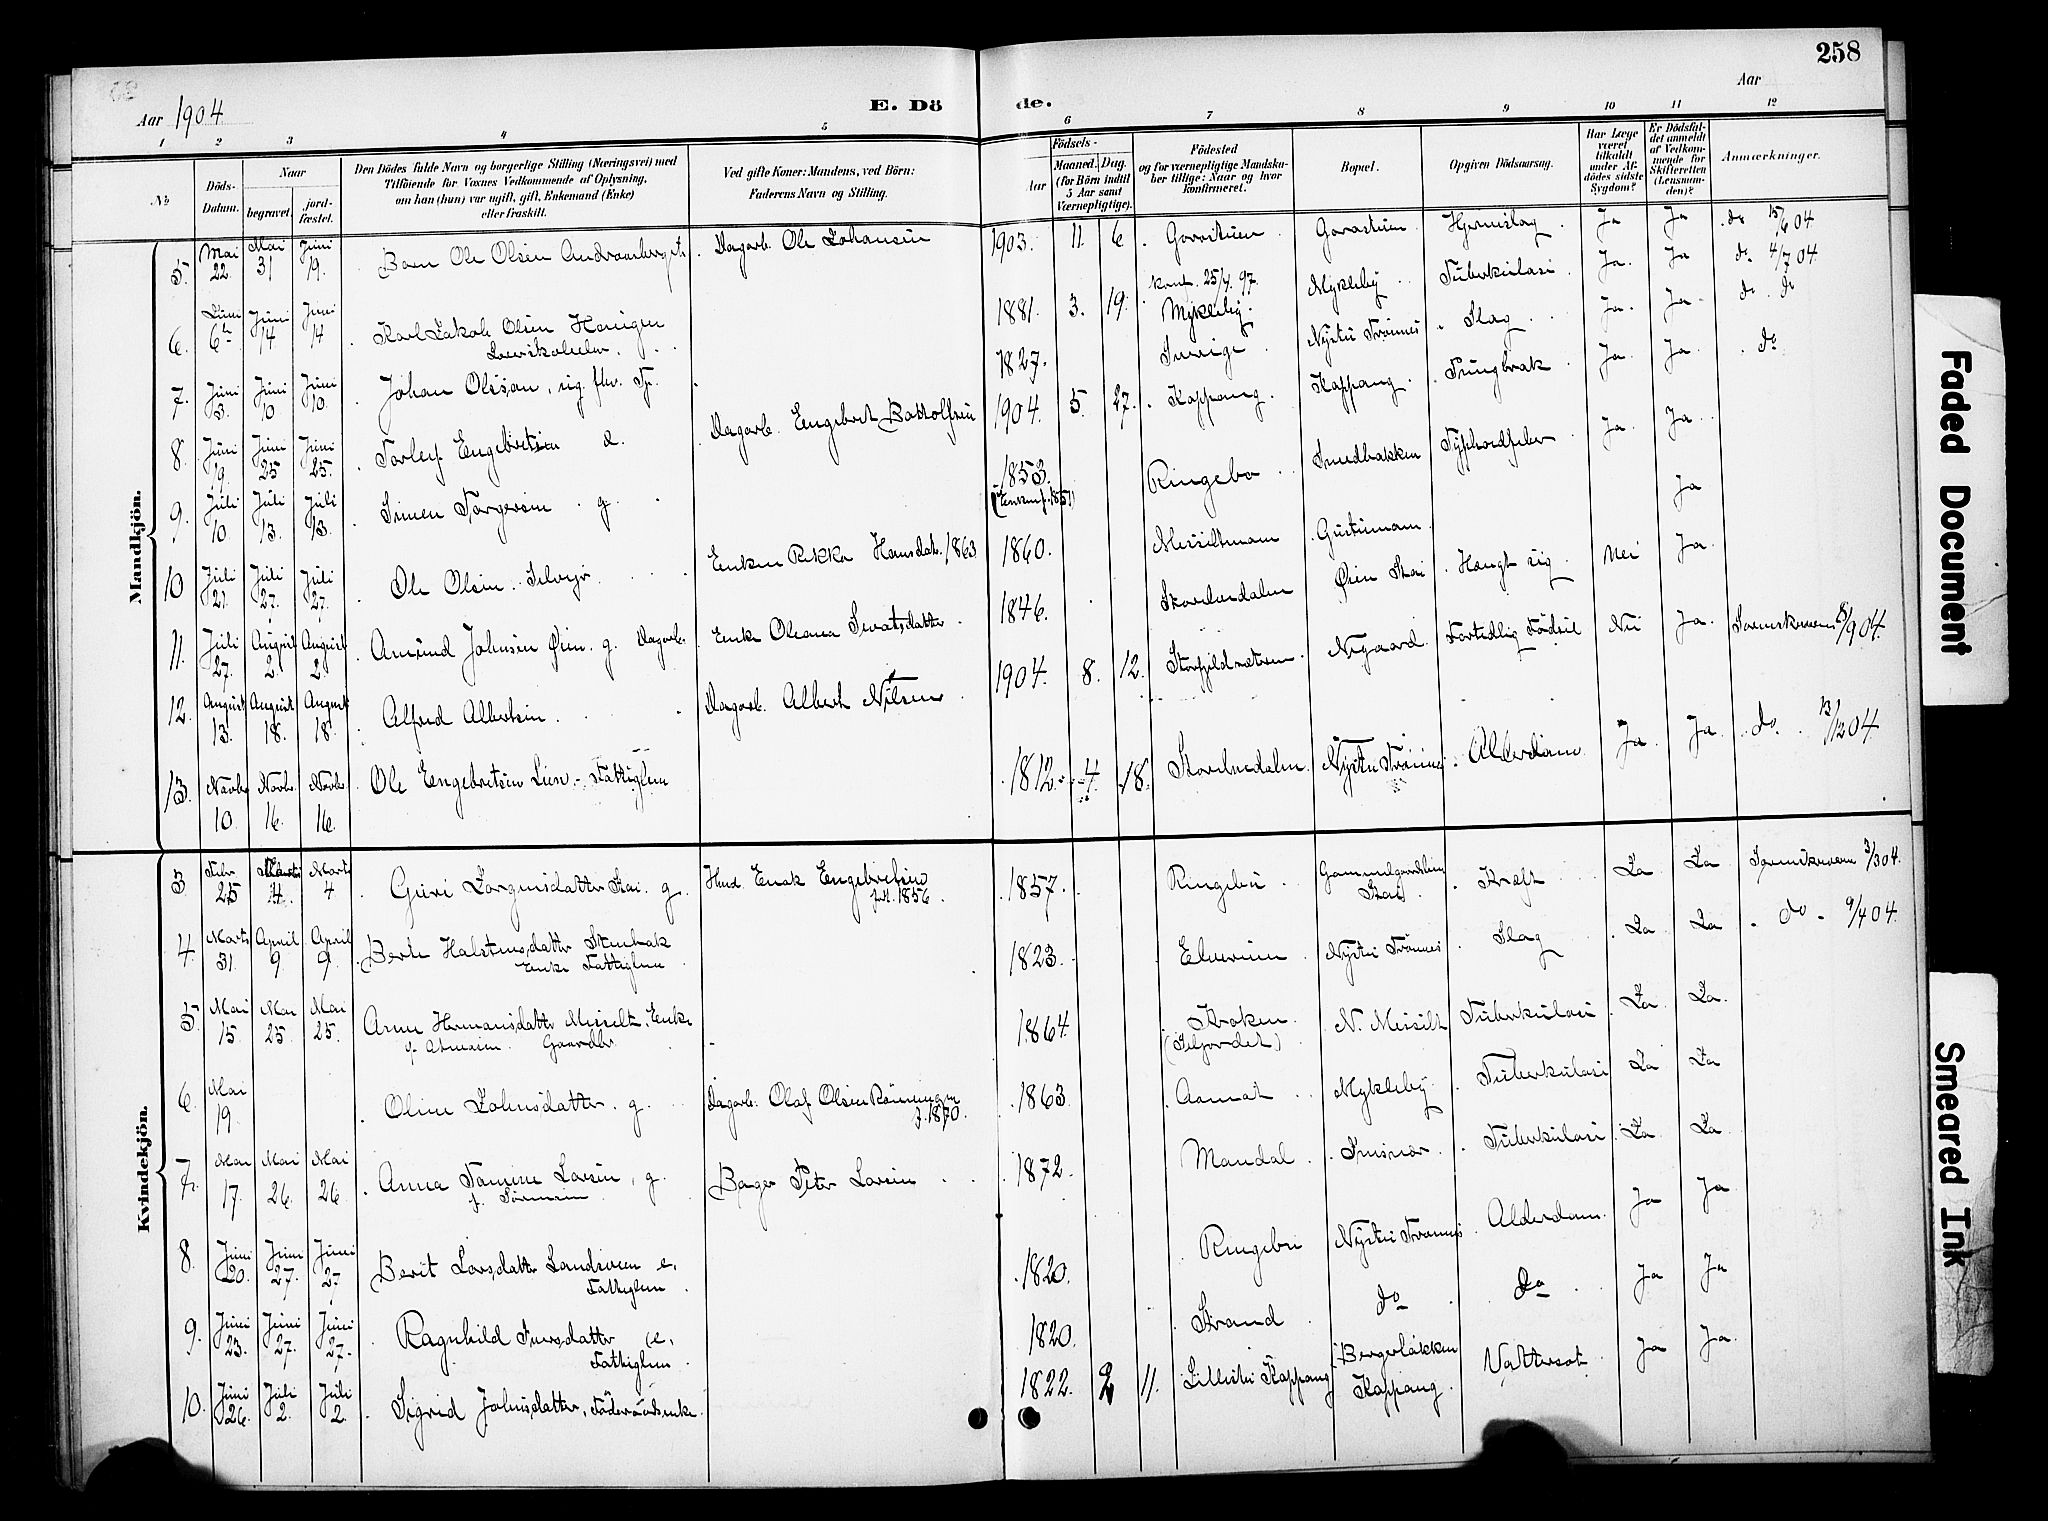 258
Aar 1904
E. Dö
de.
Aar
1 2 3 4 5 6 7 8 9 10 11 12
No
Döds-Datum.
Naar
begravet.
jord-fæstet.
Den Dödes fulde Navn og borgerlige Stilling (Næringsvei) med
Tilföiende for Voxnes Vedkommende af Oplysning,
om han (hun) var ugift, gift, Enkemand (Enke)
eller fraskilt.
Ved gifte Koner: Mandens, ved Börn:
Faderens Navn og Stilling.
Födsels-
Aar
Maaned. Dag.
(for Börn indtil
5 Aar samt
Værnepligtige).
Födested
og for værnepligtige Mandska-
ber tillige: Naar og hvor
konfirmeret.
Bopæl.
Opgiven Dödsaarsag.
Har Læge
været
tilkaldt
under Af-
dödes sidste
Sygdom?
Er Dödsfal-
det anmeldt
af Vedkom-
mende for
Skifteretten
(Lensman-
den)?
Anmærkninger.
Mandkjön.
5. Mai 22. Mai 31 Juni 19. Barn Ole Olsen Dagarb. Ole Johansen 1903. 11. 6 Ja Ja do 15/6 04
6. Juni 6te Juni 14 Juni 14 Karl Jakob Olsen 1881. 3. 19. konf. 25/4. 97. Mykleby. Mykleby Tuberkulosi Ja. Ja do 4/7 04
7. Juni 3. Juni 10 Juni 10. Johan Olssen 1827. Sverige Nystu Trønnes Slag Ja. Ja do do
8. Juni 19. Juni 25 Juni 25. Torleif Engebretsen Dagarb. Engebret Bottolfsen 1904. 5. 27. Koppang. Koppang. Ja. Ja. do
9. Juli 10 Juli 13. Juli 13. Simen Torgersen g. 1853. Ringebo Smedbakken Ja. Ja.
10 Juli 21. Juli 27. Juli 27. Ole Olsen 1863 1860. Ja
11. Juli 27. August 2. August 2. Amund Johnsen Øien g. Dagarb. Enke Oleana Sivertsdatter 1846. Storelvedalen Øien Stai Hængt sig Nei Ja
12. August 13. August 18. August 18. Alfred Albertsen Dagarb. Albert Nilsen 1904. 8. 12. Nygaard Fortidlig Födsel Nei Ja. 8/9 04.
13. Novbr 10. Novbr. 16. Novbr. 16. Ole Engebretsen Lien Fattiglem 1812. 4 18. Storelvedalen Nystu Trønnes Alderdom Ja Ja do 13/12 04
Kvindekjön.
3 Febr 25 Marts 4. Marts 4 Guri Jörgensdatter Stai. g. Husd. Enok Engebretsen f. 1856. 1857. Ringebu Stai Kræft Ja Ja 3/3 04.
4. Marts 31. April 9. April 9 Berte Halstensdatter Stenbak
Enke Fattiglem 1823. Elverum Nystu Trønnes Slag Ja Ja do 9/4 04.
5. Mai 15. Mai 25 Mai 25. Anne Hermansdatter Messelt. Enke
1864. Kroken N. Messelt Tuberkulosi Ja Ja.
6. Mai 19. Oline Johnsdatter. g. Dagarb. Olaf Olsen Rønningen f. 1870. 1863. Aamot Mykleby. Tuberkulosi Ja Ja
7. Mai 17. Mai 26. Mai 26 Anna Tomine Larsen, g. Bager Peter Larsen 1872. Mandal Tuberkulosi Ja Ja
8. Juni 20. Juni 27. Juni 27. Berit Larsdatter e.
Fattiglem 1820. Ringebu Nystu Trønnes Alderdom. Ja Ja
9. Juni 23. Juni 27. Juni 27. Ragnhild Iversdatter e.
Fattiglem 1820. Strand do do Ja Ja
10. Juni 26. Juli 2. Juli 2. Sigrid Johnsdatter, Föderaadsenke 1822. 2 11. Lillestu Koppang Bergerløkken
Koppang. Vattersot Ja Ja.
Faded Document
Smeared Ink